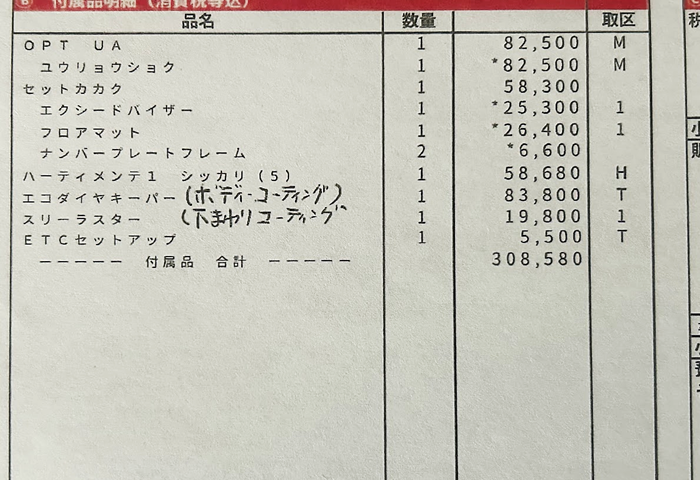 B 付属品明細(消費税等込)
品名 数量 取区
OPT UA 1 82,500 M
ユウリョウショク 1 *82,500 M
セットカカク 1 58,300
エクシードバイザー 1 *25,300 1
フロアマット 1 *26,400 1
ナンバープレートフレーム 2 *6,600
ハーティメンテ1 シッカリ(5) 1 58,680 H
エコダイヤキーパー (ボディーコーティング) 1 83,800 T
スリーラスター (下まわりコーティング 1 19,800 1
ETCセットアップ 1 5,500 T
----- 付属品 合計 ----- 308,580